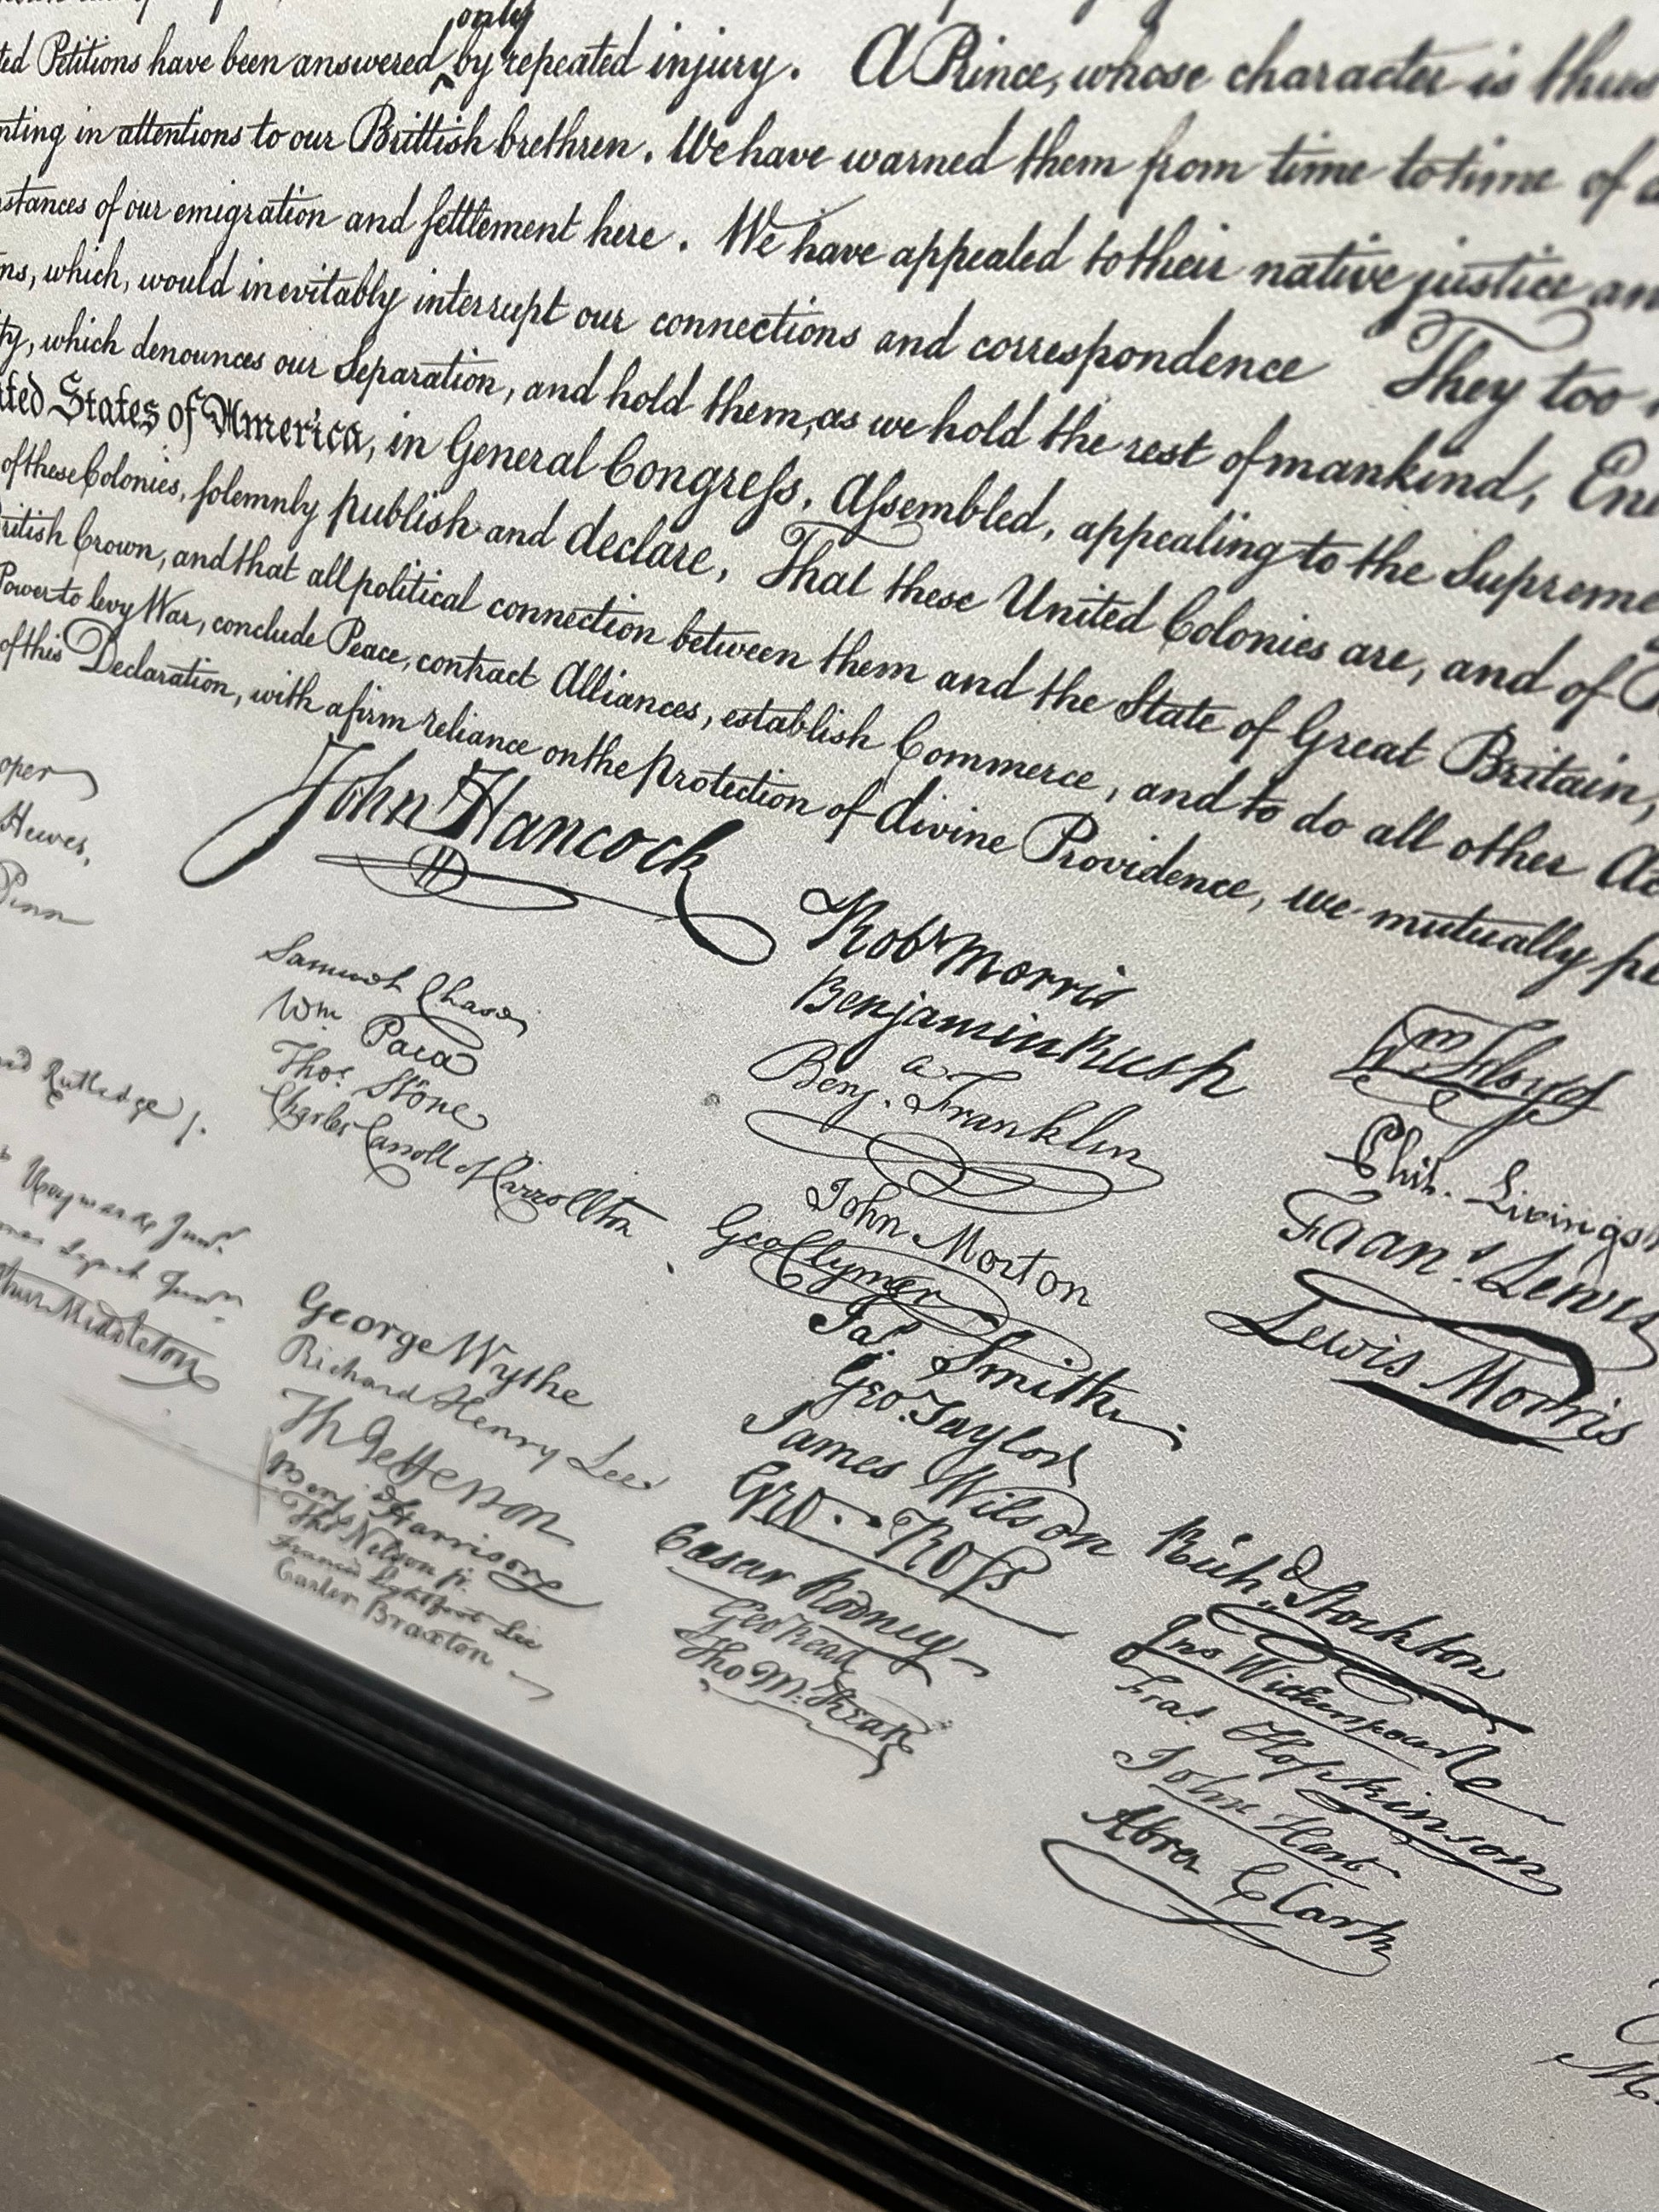 only
ted Petitions have been answered by repeated injury. A Prince, whose character is thus
nting in attentions to our Brittish brethren. We have warned them from time to time of a
stances of our emigration and settlement here. We have appealed to their native justice an
ns, which, would inevitably interrupt our connections and correspondence They too
ty, which denounces our Separation, and hold them, as we hold the rest of mankind, Ene
ited States of America, in General Congress, Assembled, appealing to the Supreme
of these Colonies, solemnly publish and declare, That these United Colonies are, and of R
British Crown, and that all political connection between them and the State of Great Britain,
Power to levy War, conclude Peace, contract Alliances, establish Commerce, and to do all other Ac
of this Declaration, with a firm reliance on the protection of divine Providence, we mutually pl
oper
Hewes,
Penn
Rutledge /.
Heyward Junr.
Lynch Junr.
Middleton
John Hancock
Samuel Chase
Wm. Paca
Thos. Stone
Charles Carroll of Carrollton
George Wythe
Richard Henry Lee
Th Jefferson
Benja Harrison
Thos Nelson jr.
Francis Lightfoot Lee
Carter Braxton
Robt Morris
Benjamin Rush
Benja. Franklin
John Morton
Geo Clymer
Jas. Smith
Geo. Taylor
James Wilson
Geo. Ross
Caesar Rodney
Geo Read
Tho M:Kean
Wm Floyd
Phil. Livings
Frans. Lewis
Lewis Morris
Richd. Stockton
Jno Witherspoon
Fras. Hopkinson
John Hart
Abra Clark